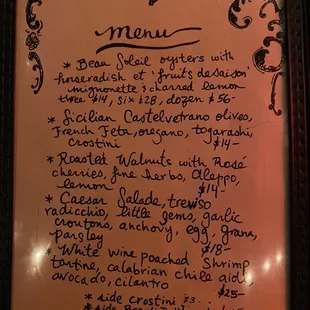 menu
* Beau Soleil oysters with
horseradish et 'fruits de saison'
mignonette & charred lemon
three $14, six $28, dozen $56-
* Sicilian Castelvetrano olives,
French Feta, oregano, togarashi,
crostini $14-
* Roasted Walnuts with Rosé
cherries, fine herbs, Aleppo,
lemon $14-
* Caesar Salade, treviso
radicchio, little gems, garlic
croutons, anchovy, egg, grana,
parsley $18-
* White wine poached Shrimp
tartine, calabrian chile aioli,
avocado, cilantro $25-
* side crostini $3-
* side